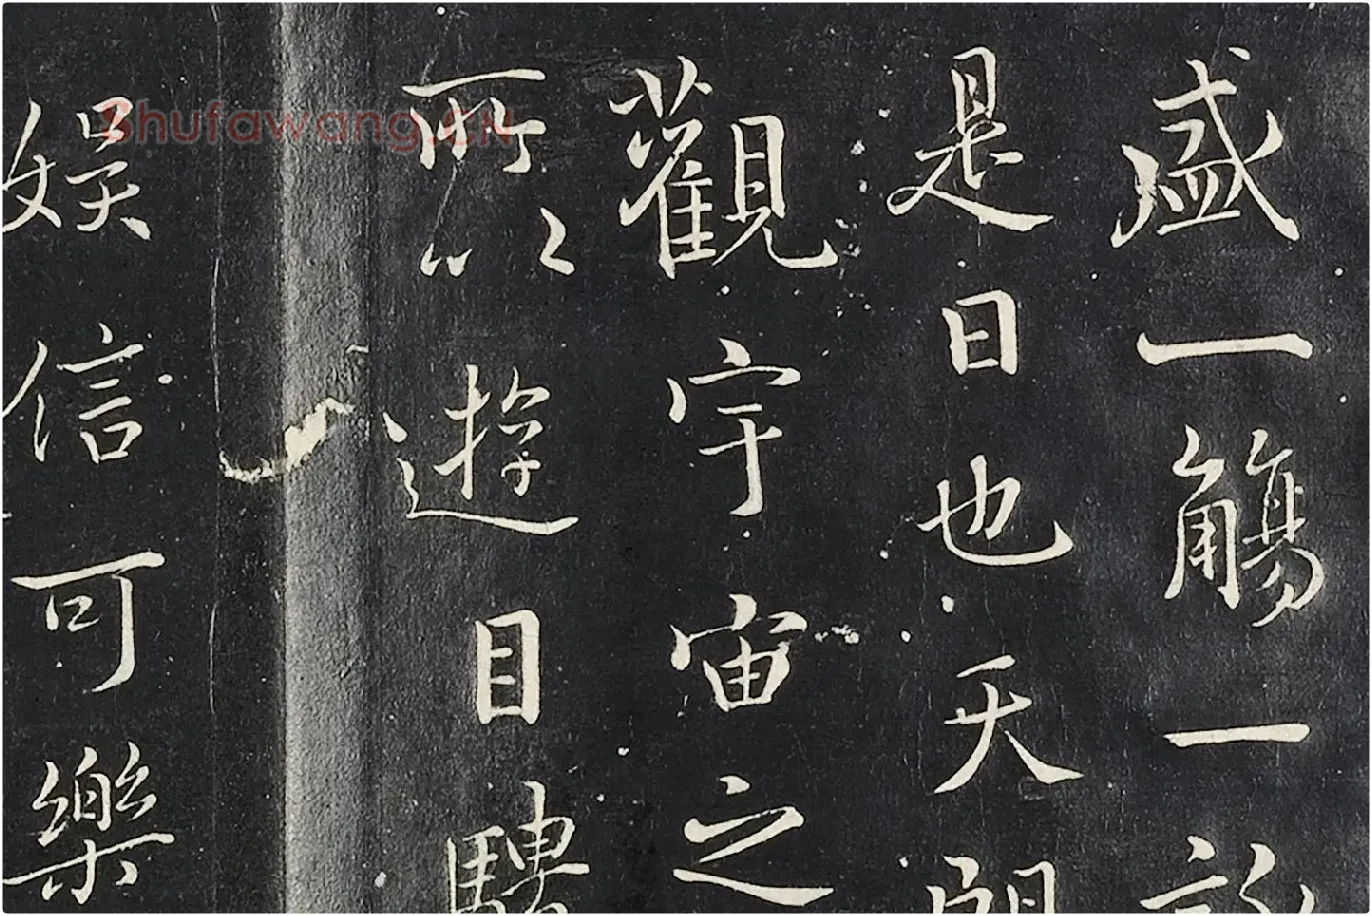 盛一觴一
是日也天
觀宇宙之
所以遊目騁
娛信可樂
Shufawang.CN